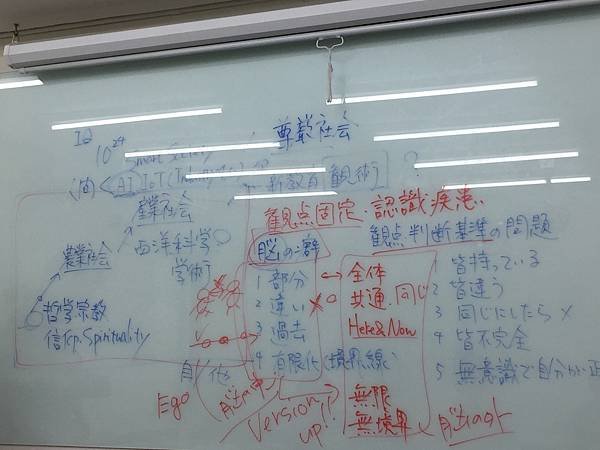 尊厳社会
10^24
Smart Society
AI IoT
新教育 観術
産業社会
観点固定・認識疾患
農業社会
西洋科学
学術
脳の癖
観点判断基準の問題
1 部分 ↔ 全体
2 違い 共通・同じ
3 過去 Here&Now
4 有限化(境界線)
1 皆持っている
2 皆違う
3 同じにしたら×
4 皆不完全
5 無意識で自分が正
哲学宗教
信 Spirituality
自/他
Ego
Version
up!!
無限
無境界